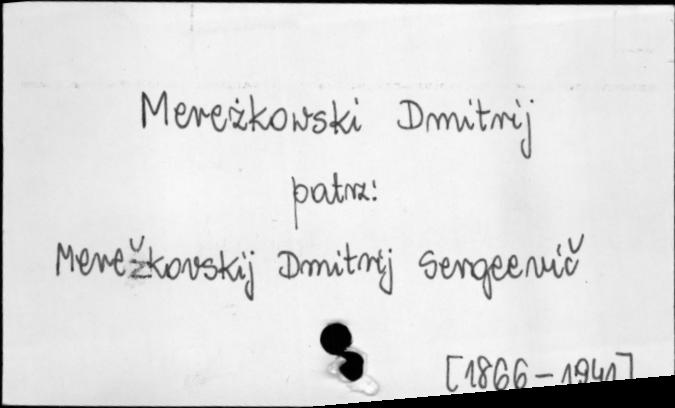 Mereżkowski Dmitrij
patrz:
Merežkovskij Dmitrij Sergeevič
[1866-1941]